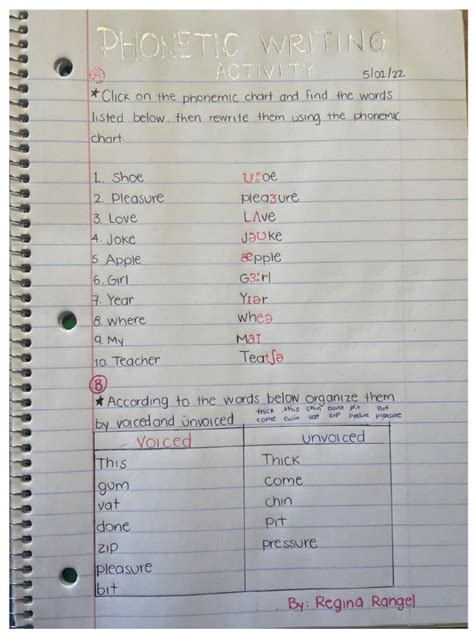 PHONETIC WRITING
ACTIVITY 5/02/22
A
★ Click on the phonemic chart and find the words
listed below. then rewrite them using the phonemic
chart.
1. Shoe ʊːoe
2. Pleasure pleaʒure
3. Love Lʌve
4. Joke Jəʊke
5 Apple æpple
6. Girl Gɜːrl
7. Year Yɪər
8. where wheə
9. My Maɪ
10. Teacher Teatʃə
B
★ According to the words below organize them
thick this chin done pit
by voiced and unvoiced come vat zip
voiced unvoiced
This Thick
gum come
vat chin
done pit
zip pressure
pleasure
bit
By: Regina Rangel